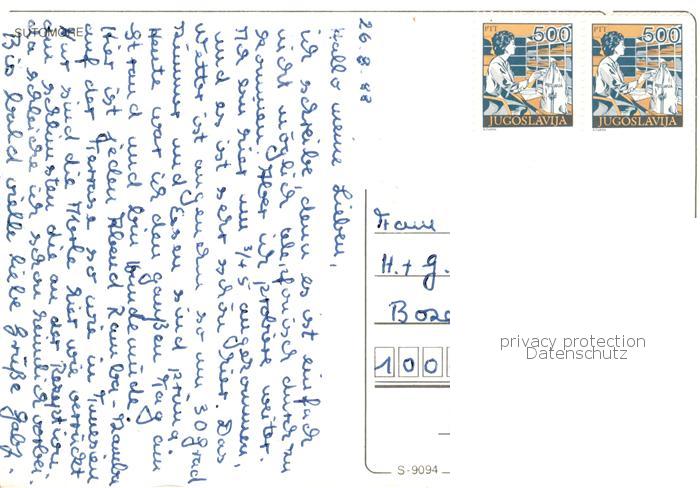 SUTOMORE
26.8.88
Hallo meine Lieben,
ich schreibe, denn es ist einfach
nicht möglich telefonisch durch zu
kommen. Aber ich probiere weiter.
Ich bin hier um 3/4 5 angekommen,
und es ist sehr schön hier. Das
Wetter ist angenehm so um 30 Grad
Zimmer und Essen sind prima.
Heute war ich den ganzen Tag am
Strand und bin hundemüde.
Hier ist jeden Abend Ramba-Zamba
auf der Terrasse so wie in Tunesien
Nur sind die Kerle hier wie verrückt
am schlimsten die an der Rezeption.
da schleiche ich schon heimlich vorbei.
Bis bald vielle liebe Grüße Gaby.
PTT 500
JUGOSLAVIJA
PTT 500
JUGOSLAVIJA
Fam
H. + G.
100
privacy protection
Datenschutz
S-9094